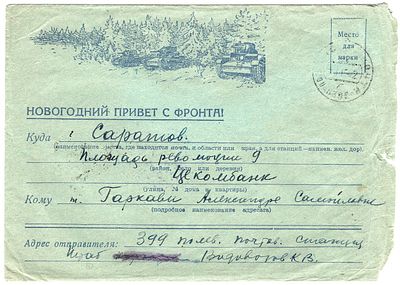 Место
для
марки
НОВОГОДНИЙ ПРИВЕТ С ФРОНТА!
Куда г. Саратов.
(наименование места, где находится почта, и области или края, а для станций—наимен. жел. дор.)
Площадь революции 9
(район, село или деревня)
Цекомбанк
(улица, № дома и квартиры)
Кому т. Гаркави Александре Самойловне
(подробное наименование адресата)
Адрес отправителя: 399 полев. почтов. станция
Штаб Водовозов К.В.